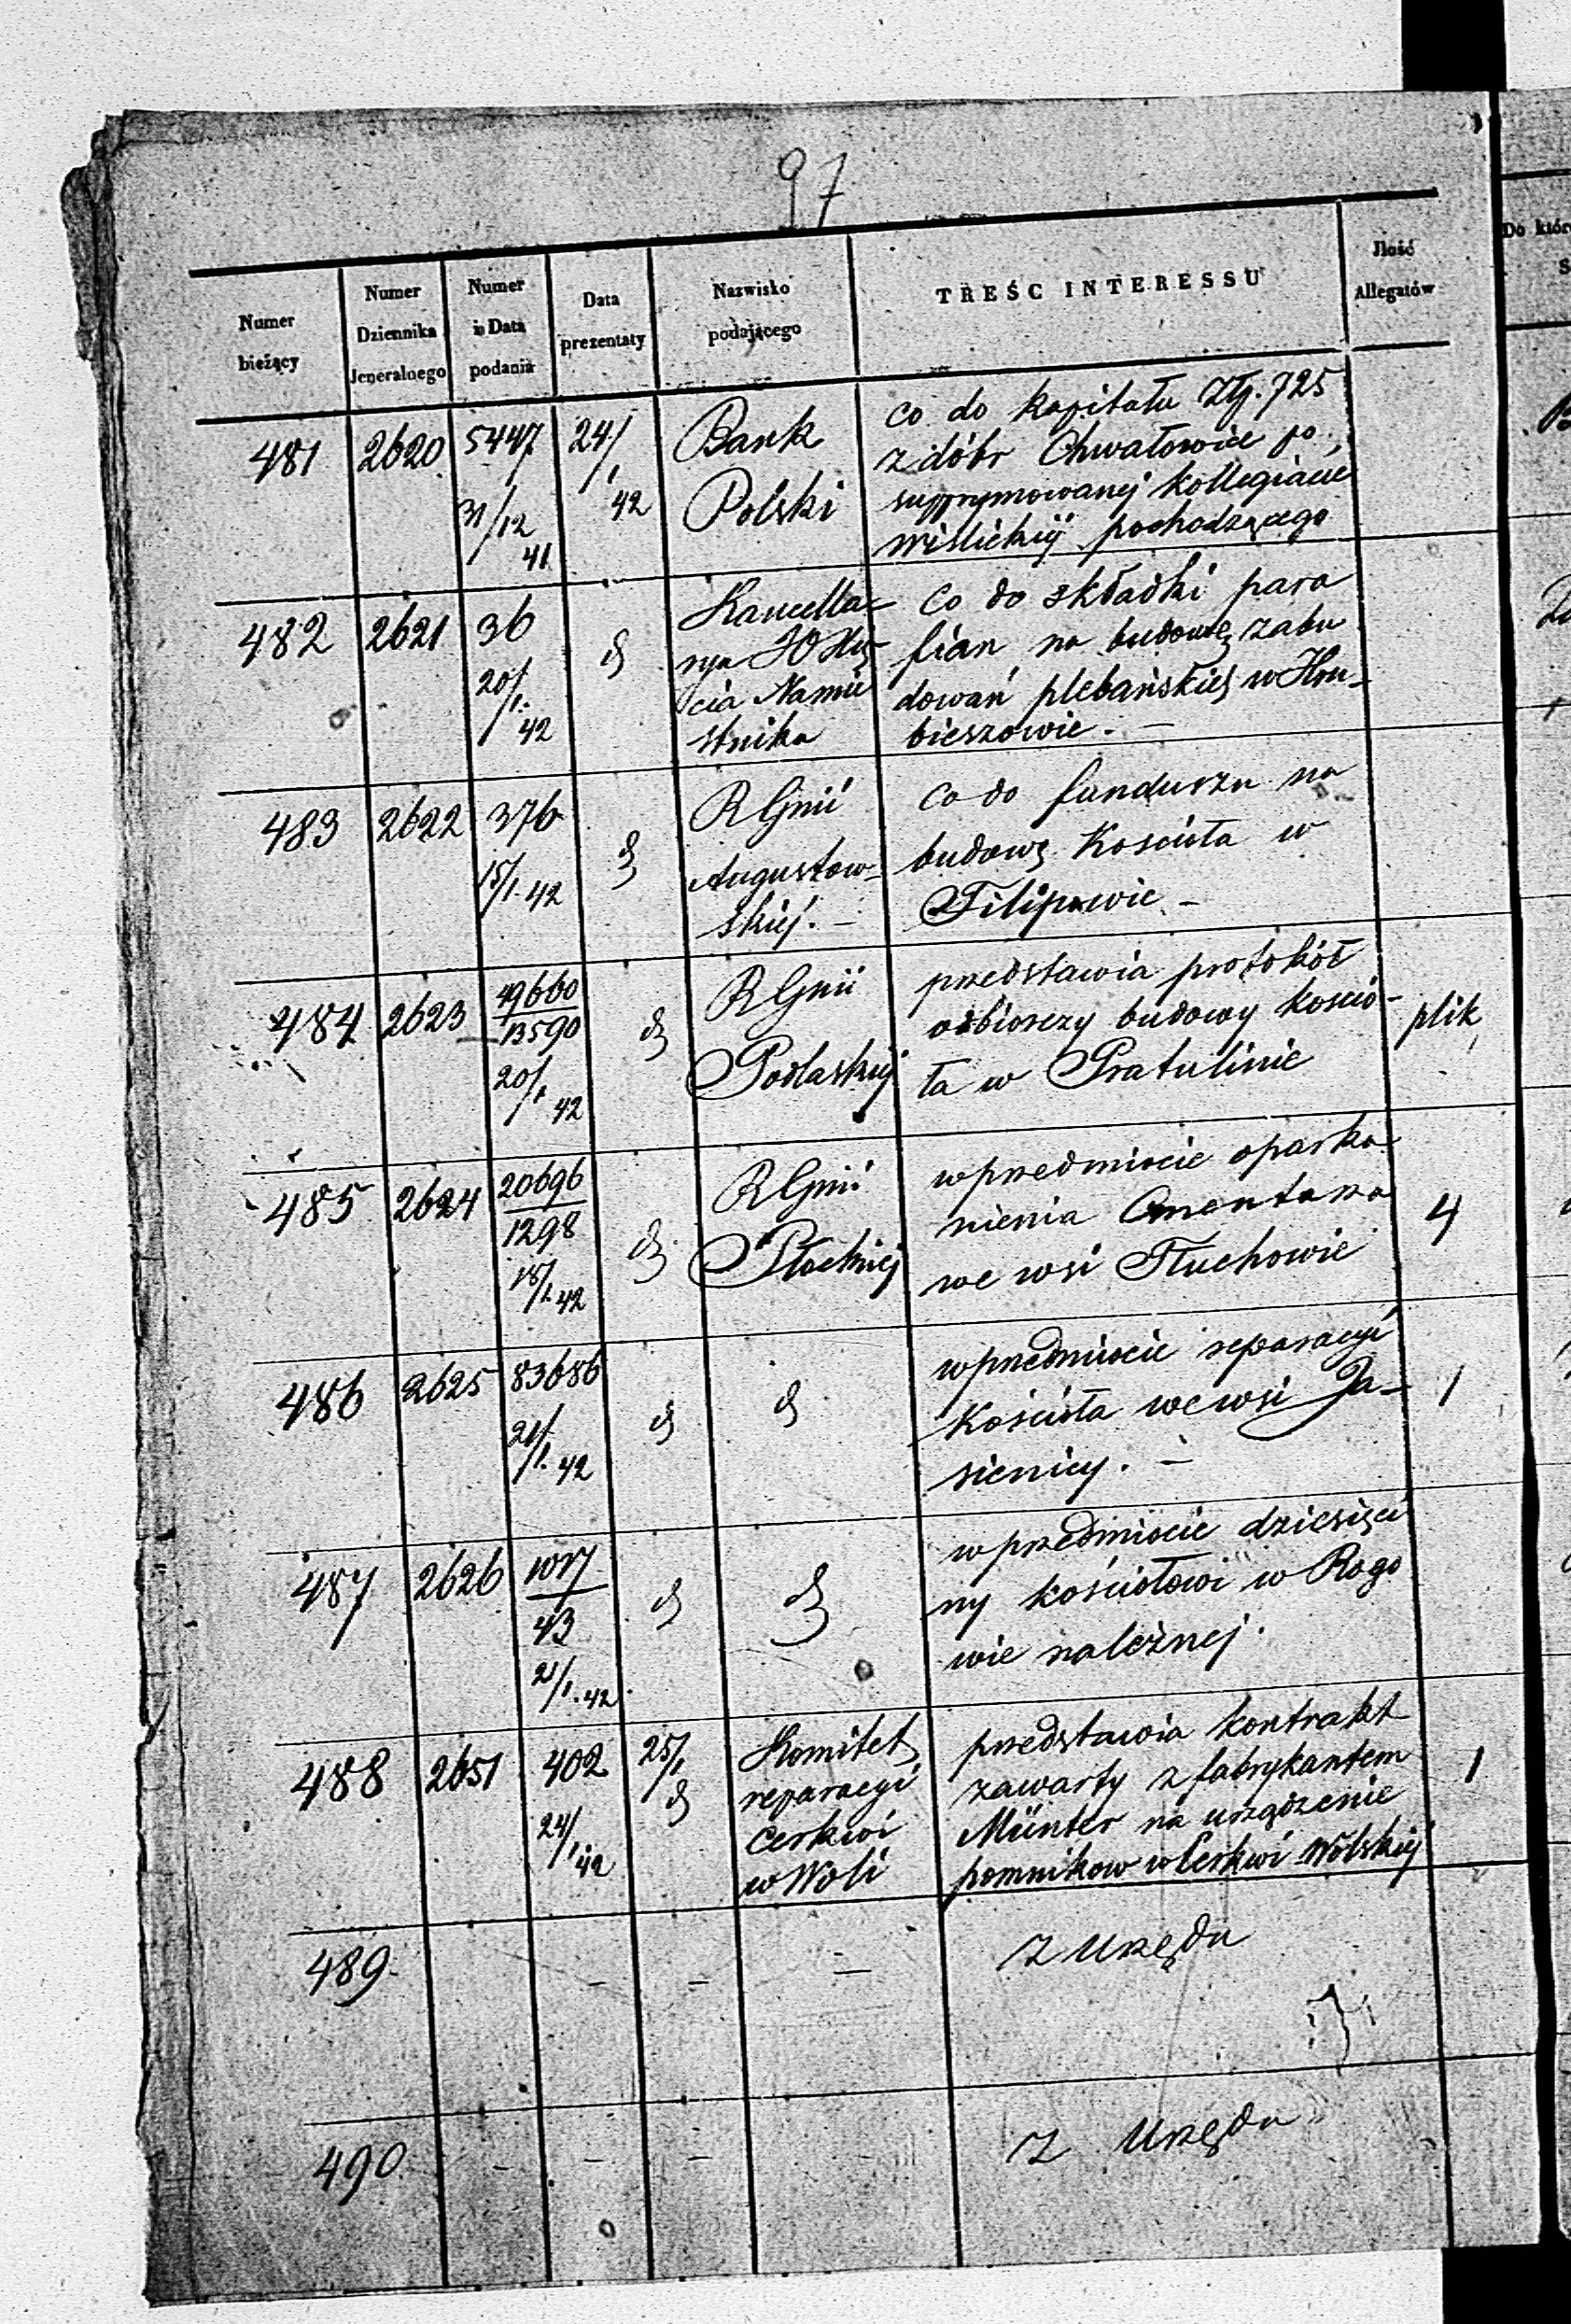 97
Numer bieżący
Numer Dziennika Jeneralnego
Numer i Data podania
Data prezentaty
Nazwisko podającego
TREŚC INTERESSU
Ilość Allegatów
Do któr
481 2620 5447 31/12 41 24/1 42
Bank
Polski
co do kapitału Złp. 725
z dóbr Chwałowice po
supprymowanej kollegiacie
wislickiej pochodzącego
482 2621 36 20/1. 42
Kancella-
rya JO Xię
cia Namie
stnika
Co do składki para
fian na budowę zabu
dowań plebańskich w Hru-
bieszowie. —
483 2622 376 15/1. 42
RGnii
Augustow-
skiej. —
co do funduszu na
budowę Kościoła w
Filipowie —
484 2623 49660/13590 20/1 42
RGnii
Podlaskiej
przedstawia protokół
odbiorczy budowy kościo-
ła w Pratulinie
plik
485 2624 20696/1298 18/1 42
RGnii
Płockiej
w przedmiocie oparka
nienia Cmentarza
we wsi Tłuchowie
4
486 2625 83686 21/1. 42
w przedmiocie reparacyi
Kościoła we wsi Ja-
sienicy. —
1
487 2626 1017/43 21/1. 42
w przedmiocie dziesięci
ny kościołowi w Rogo
wie należnej.
488 2651 402 24/1 42 25/1
Komitet
reparacyi
Cerkwi
w Woli
przedstawia kontrakt
zawarty z fabrykantem
Münter na urządzenie
pomnikow w Cerkwi Wolskiej
1
489 – – —
z Urzędu
490 – – – –
z Urzędu